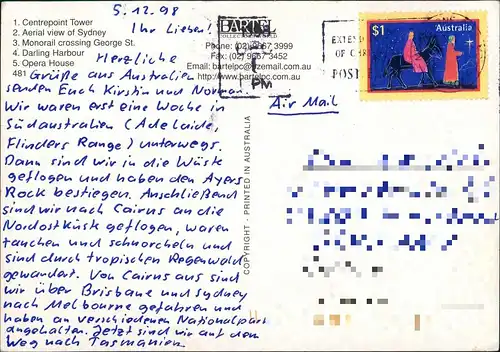 5.12.98
Ihr Lieben!
1. Centrepoint Tower
2. Aerial view of Sydney
3. Monorail crossing George St.
4. Darling Harbour
5. Opera House
481
BARTEL
Phone: (02) 9667 3999
Fax: (02) 9667 3452
Email: bartelpc@ozemail.com.au
http://www.bartelpc.com.au
PM
EXTEND
OF CHR
POST
$1 Australia
Air Mail
Herzliche
Grüße aus Australien
senden Euch Kirstin und Norman.
Wir waren erst eine Woche in
Südaustralien (Adelaide,
Flinders Range) unterwegs.
Dann sind wir in die Wüste
geflogen und haben den Ayers
Rock bestiegen. Anschließend
sind wir nach Cairns an die
Nordostküste geflogen, waren
tauchen und schnorcheln und
sind durch tropischen Regenwald
gewandert. Von Cairns aus sind
wir über Brisbane und Sydney
nach Melbourne gefahren und
haben an verschiedenen Nationalparks
angehalten. Jetzt sind wir auf dem
Weg nach Tasmanien.
COPYRIGHT - PRINTED IN AUSTRALIA